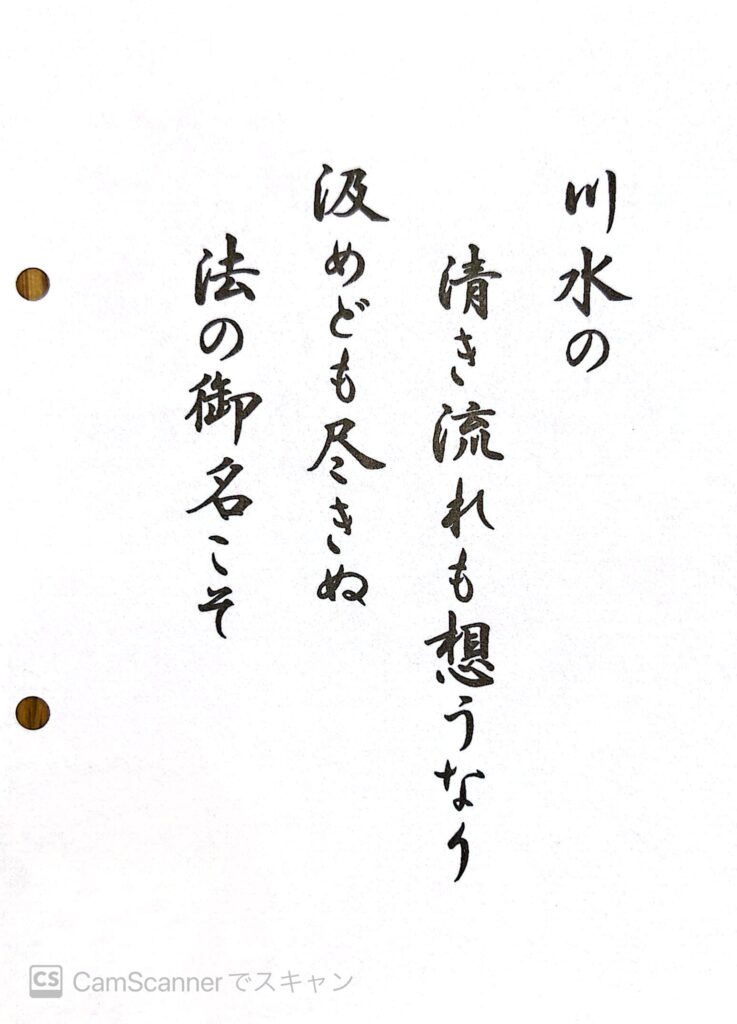 川水の
清き流れも想うなり
汲めども尽きぬ
法の御名こそ
CS CamScannerでスキャン